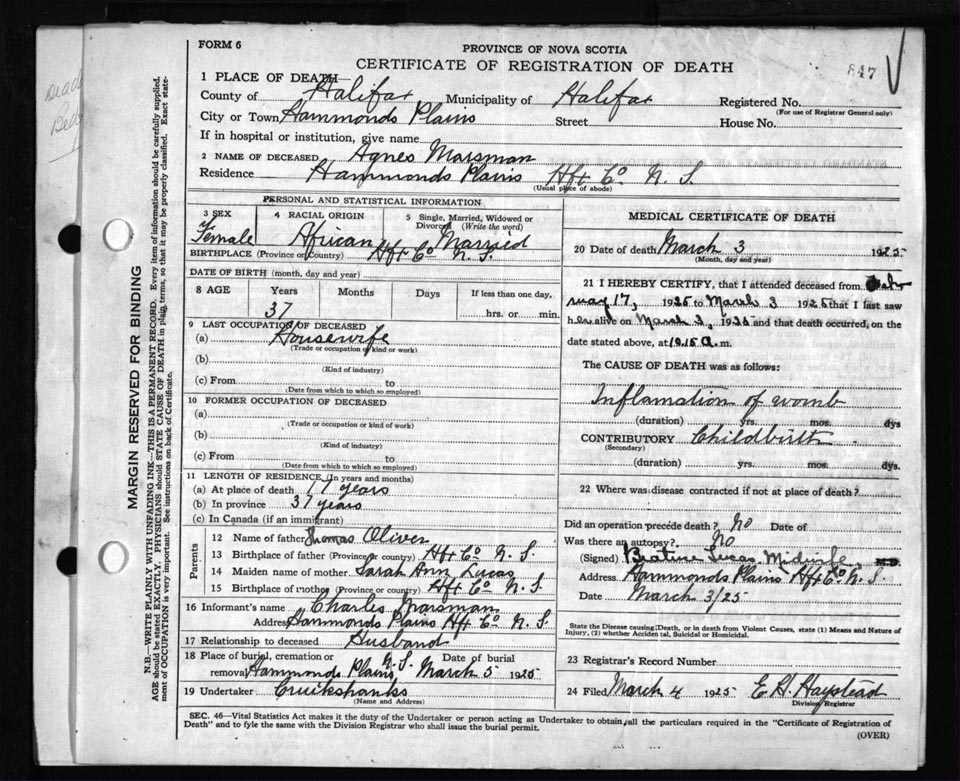 FORM 6
PROVINCE OF NOVA SCOTIA
CERTIFICATE OF REGISTRATION OF DEATH
847
1 PLACE OF DEATH
County of Halifax Municipality of Halifax Registered No.
(For use of Registrar General only)
City or Town Hammonds Plains Street House No.
If in hospital or institution, give name
2 NAME OF DECEASED Agnes Marsman
Residence Hammonds Plains Hfx Co N. S.
(Usual place of abode)
PERSONAL AND STATISTICAL INFORMATION
3 SEX Female
4 RACIAL ORIGIN African
5 Single, Married, Widowed or Divorced (Write the word) Married
BIRTHPLACE (Province or Country) Hfx Co N. S.
DATE OF BIRTH (month, day and year)
8 AGE Years Months Days If less than one day,
37 hrs. or min.
9 LAST OCCUPATION OF DECEASED
(a) Housewife
(Trade or occupation or kind or work)
(b)
(Kind of industry)
(c) From to
(Date from which to which so employed)
10 FORMER OCCUPATION OF DECEASED
(a)
(Trade or occupation or kind of work)
(b)
(Kind of industry)
(c) From to
(Date from which to which so employed)
11 LENGTH OF RESIDENCE (In years and months)
(a) At place of death 17 years
(b) In province 37 years
(c) In Canada (if an immigrant)
Parents
12 Name of father Thomas Oliver
13 Birthplace of father (Province or country) Hfx Co N. S.
14 Maiden name of mother Sarah Ann Lucas
15 Birthplace of mother (Province or country) Hfx Co N. S.
16 Informant's name Charles Marsman
Address Hammonds Plains Hfx Co N. S.
17 Relationship to deceased Husband
18 Place of burial, cremation or removal Hammonds Plains N. S. Date of burial March 5 1925
19 Undertaker Cruikshanks
(Name and Address)
MEDICAL CERTIFICATE OF DEATH
20 Date of death March 3 1925
(Month, day and year)
21 I HEREBY CERTIFY, that I attended deceased from
17, 1925 to March 3 1925 that I last saw
her alive on March 3, 1925 and that death occurred, on the
date stated above, at 10.15 a.m.
The CAUSE OF DEATH was as follows:
Inflamation of womb
(duration) yrs. mos. dys
CONTRIBUTORY Childbirth
(Secondary)
(duration) yrs. mos. dys.
22 Where was disease contracted if not at place of death?
Did an operation precede death? No Date of
Was there an autopsy? No
(Signed) Beatrice Lucas Midwife M.D.
Address Hammonds Plains Hfx Co N. S.
Date March 3/25
State the Disease causing Death, or in death from Violent Causes, state (1) Means and Nature of
Injury, (2) whether Accidental, Suicidal or Homicidal.
23 Registrar's Record Number
24 Filed March 4 1925 E. H. Haystead
Division Registrar
SEC. 46—Vital Statistics Act makes it the duty of the Undertaker or person acting as Undertaker to obtain all the particulars required in the "Certificate of Registration of
Death" and to fyle the same with the Division Registrar who shall issue the burial permit.
(OVER)
MARGIN RESERVED FOR BINDING
N.B.—WRITE PLAINLY WITH UNFADING INK—THIS IS A PERMANENT RECORD. Every item of information should be carefully supplied.
AGE should be stated EXACTLY. PHYSICIANS should STATE CAUSE OF DEATH in plain terms, so that it may be properly classified. Exact state-
ment of OCCUPATION is very important. See instructions on back of Certificate.